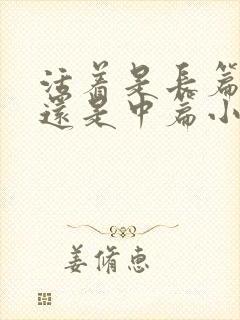 活着是长篇
还是中篇小
姜脩惠